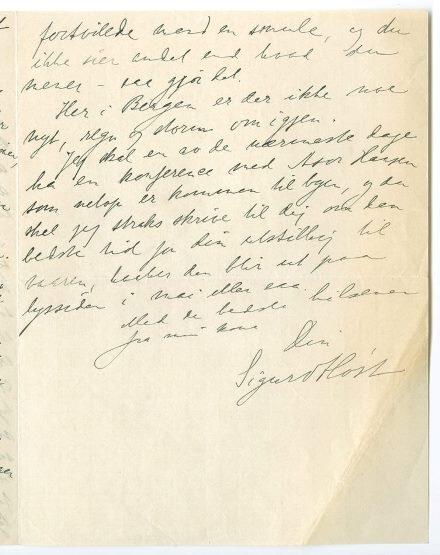 fortvilede mand en smule, og du
ikke sier andet end hvad du
mener – saa gjør det.
Her i Bergen er der ikke noe
nyt, regn og storm om igjen.
Jeg skal en av de nærmeste dage
ha en konference med Hansen
som netop er kommen til byen, og da
skal jeg straks skrive til dig om den
bedste tid for din utstilling til
vaaren, den blir ut paa
lyssiden i mai eller saa.
Med de bedste hilsener
fra min kone
Din
Sigurd Høst